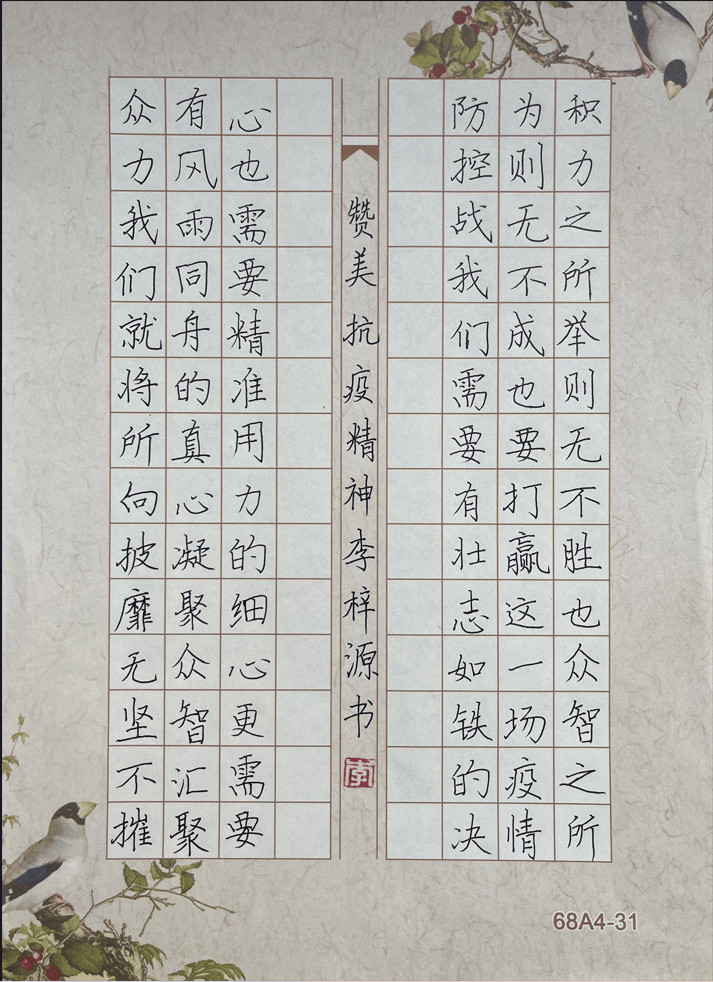 积力之所举则无不胜也众智之所
为则无不成也要打赢这一场疫情
防控战我们需要有壮志如铁的决
心也需要精准用力的细心更需要
有风雨同舟的真心凝聚众智汇聚
众力我们就将所向披靡无坚不摧
赞美抗疫精神李梓源书
李
68A4-31